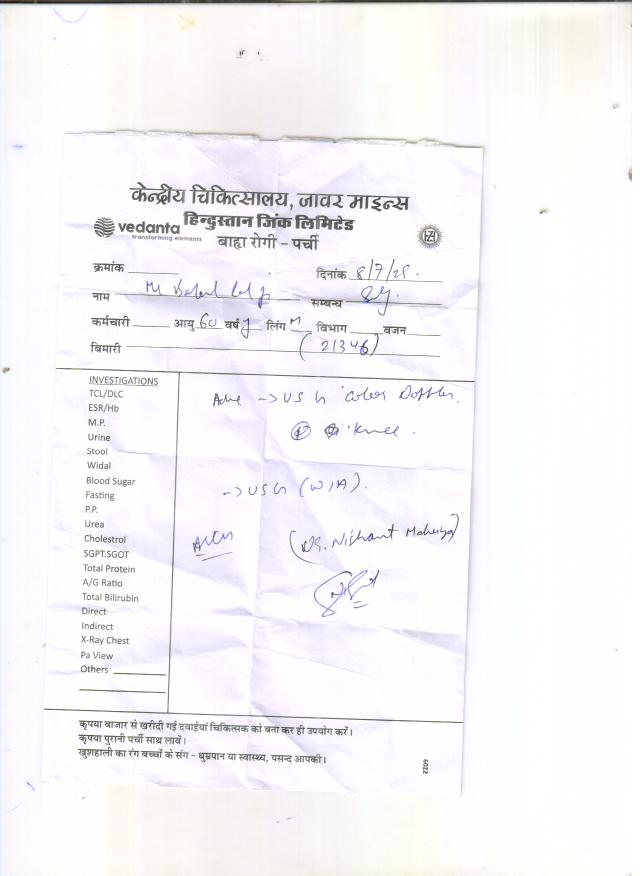 केन्द्रीय चिकित्सालय, जावर माइन्स
हिन्दुस्तान जिंक लिमिटेड
vedanta
transforming elements
बाह्य रोगी - पर्ची
क्रमांक
दिनांक 8/7/25.
नाम Mr lal ji सम्बन्ध
कर्मचारी आयु 60 वर्ष y लिंग M विभाग वजन
बिमारी (21346)
INVESTIGATIONS
TCL/DLC
ESR/Hb
M.P.
Urine
Stool
Widal
Blood Sugar
Fasting
P.P.
Urea
Cholestrol
SGPT.SGOT
Total Protein
A/G Ratio
Total Bilirubin
Direct
Indirect
X-Ray Chest
Pa View
Others
Adv -> USG Color Doppler.
Knee.
-> USG (W/A).
(Dr. Nishant)
कृपया बाजार से खरीदी गई दवाईयां चिकित्सक को बता कर ही उपयोग करें।
कृपया पुरानी पर्ची साथ लावें।
खुशहाली का रंग बच्चों के संग - धुम्रपान या स्वास्थ्य, पसन्द आपकी।
6022